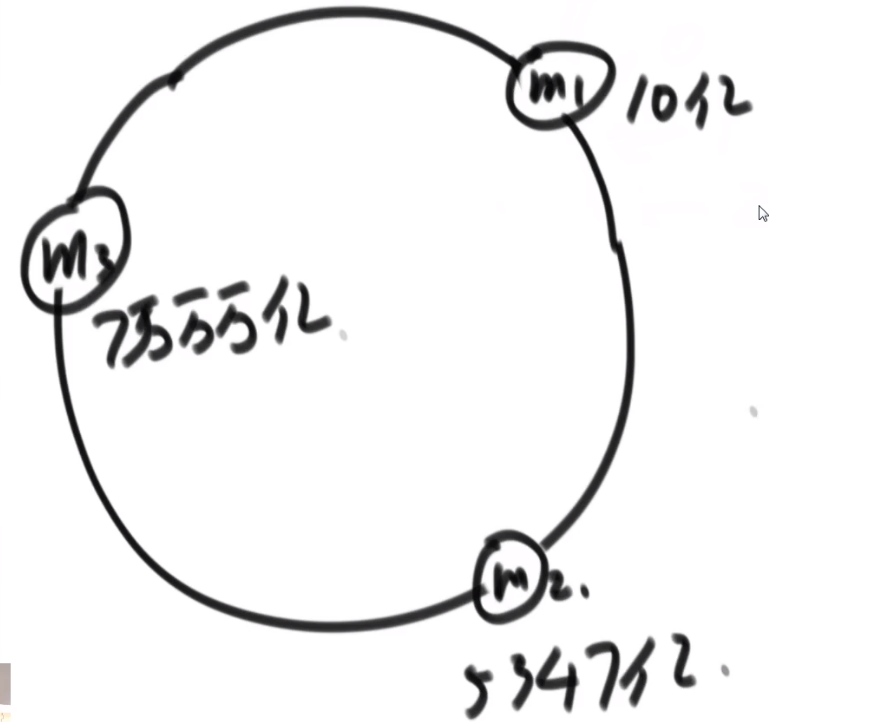 m1 10亿
m3
7万万万亿
m2.
5347亿.